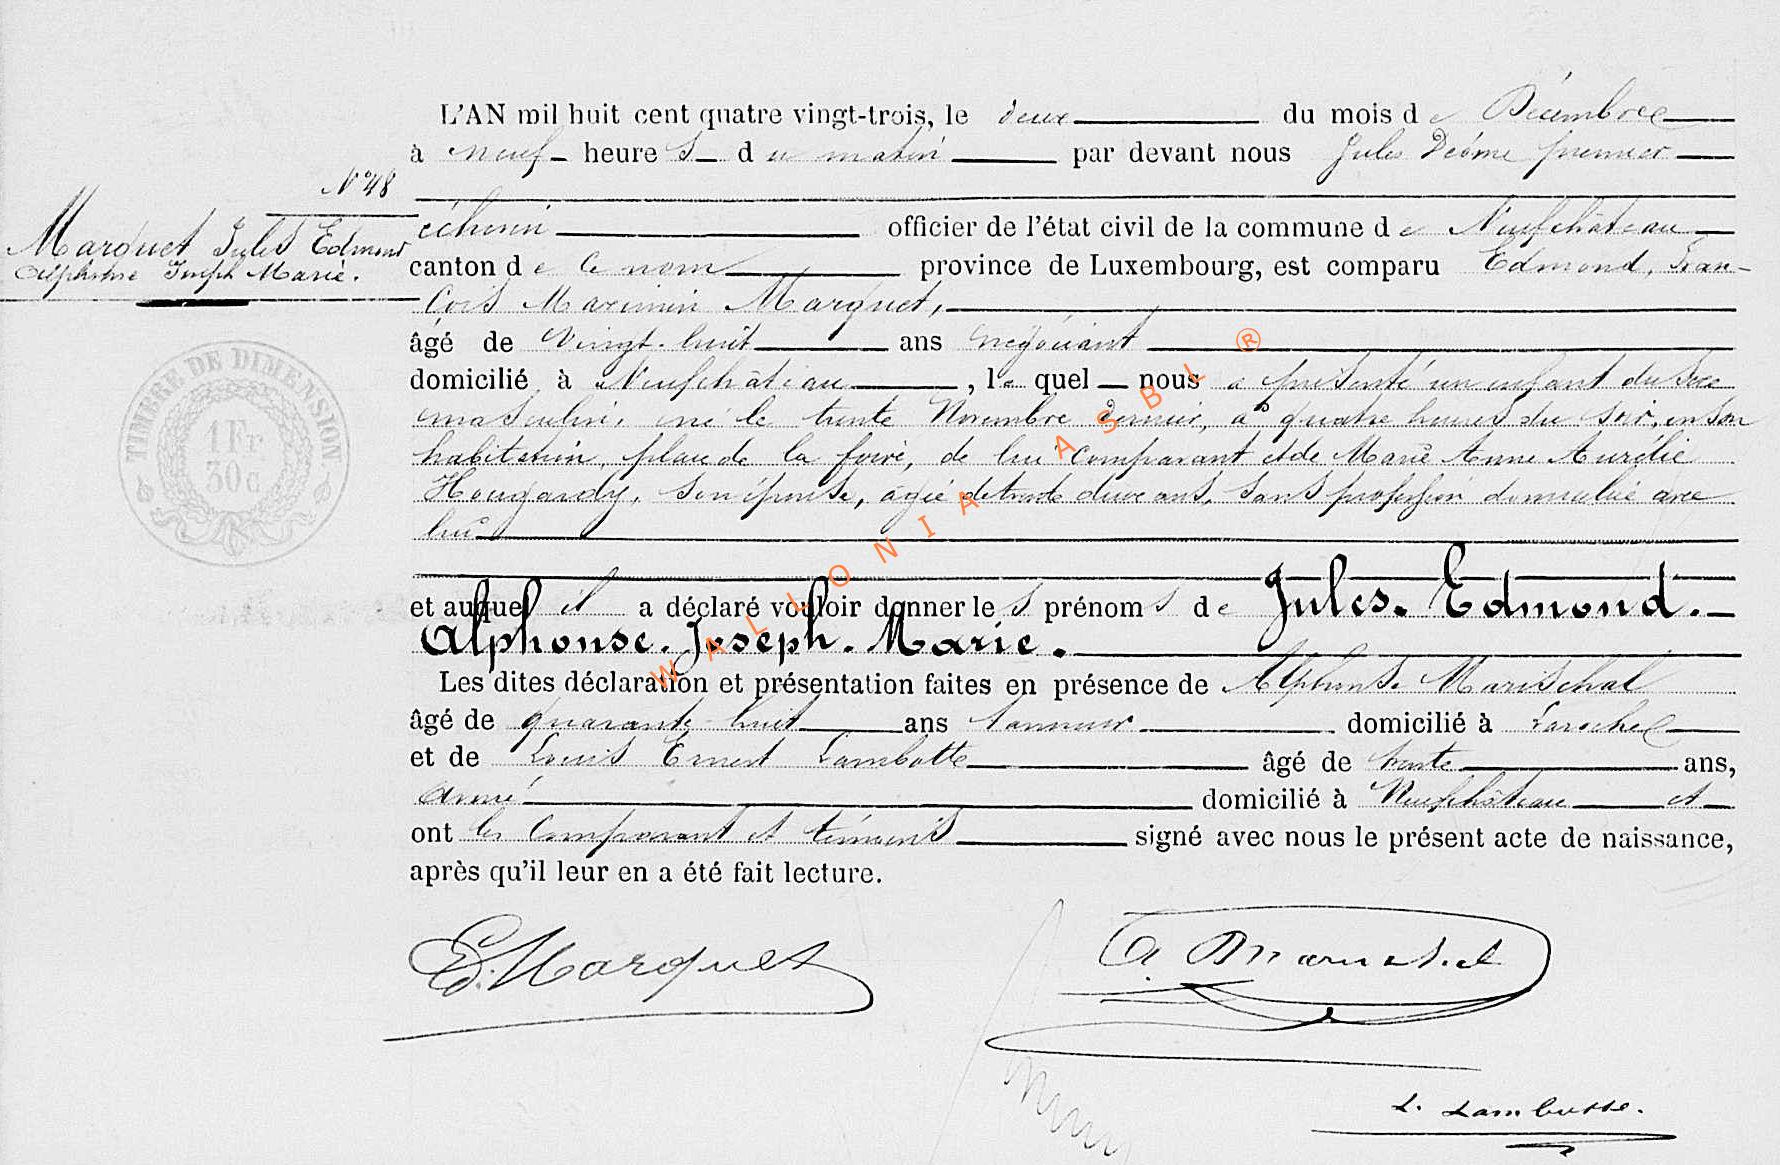 L'AN mil huit cent quatre vingt-trois, le deux du mois de Décembre
à neuf heures du matin par devant nous Jules Déôme premier
N° 48
échevin officier de l'état civil de la commune de Neufchâteau
Marquet Jules Edmond
Alphonse Joseph Marie.
canton de ce nom province de Luxembourg, est comparu Edmond, Fran-
çois Maximin Marquet,
âgé de vingt-huit ans négociant
domicilié à Neufchâteau, lequel nous a présenté un enfant du sexe
masculin, né le trente Novembre dernier, à quatre heures du soir, en son
habitation, place de la foire, de lui comparant et de Marie Anne Aurélie
Hougardy, son épouse, âgée de trente deux ans, sans profession domiciliée avec
lui
TIMBRE DE DIMENSION
1 Fr
30 c
et auquel il a déclaré vouloir donner les prénoms de Jules. Edmond.
Alphonse. Joseph. Marie.
Les dites déclaration et présentation faites en présence de Alphonse Marischal
âgé de quarante-huit ans tanneur domicilié à Laroche
et de Louis Ernest Lambotte âgé de trente ans,
domicilié à Neufchâteau et
ont les comparant et témoins signé avec nous le présent acte de naissance,
après qu'il leur en a été fait lecture.
Ed. Marquet
L. Lambotte.
WALLONIA ASBL ®